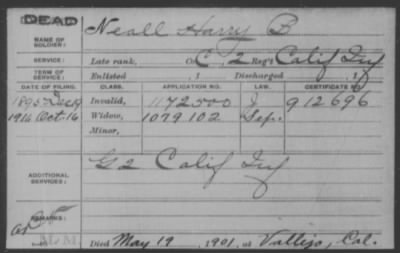 DEAD
NAME OF SOLDIER: Neall Harry B
SERVICE: Late rank, Co. C, 2 Reg't Calif Inf
TERM OF SERVICE: Enlisted , 1 Discharged , 1
DATE OF FILING. CLASS. APPLICATION NO. LAW. CERTIFICATE NO.
1895 Dec 9 Invalid, 1172500 J 912696
1916 Oct 16 Widow, 1079102 Sep.
Minor,
ADDITIONAL SERVICES: G 2 Calif Inf
REMARKS:
Died May 19, 1901, at Vallijo, Cal.